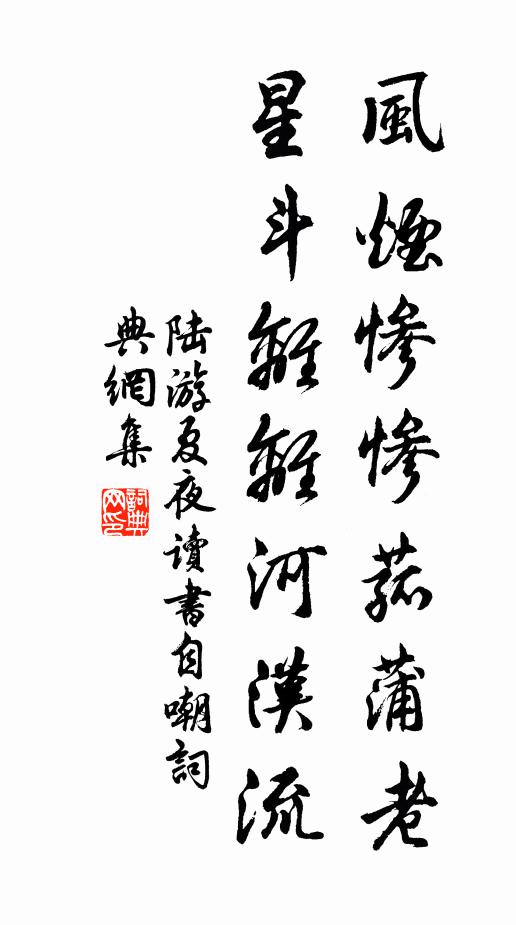 風煙慘慘菰蒲老
星斗離離河漢流
陆游夏夜讀書自嘲詞
典網集
詞典网印